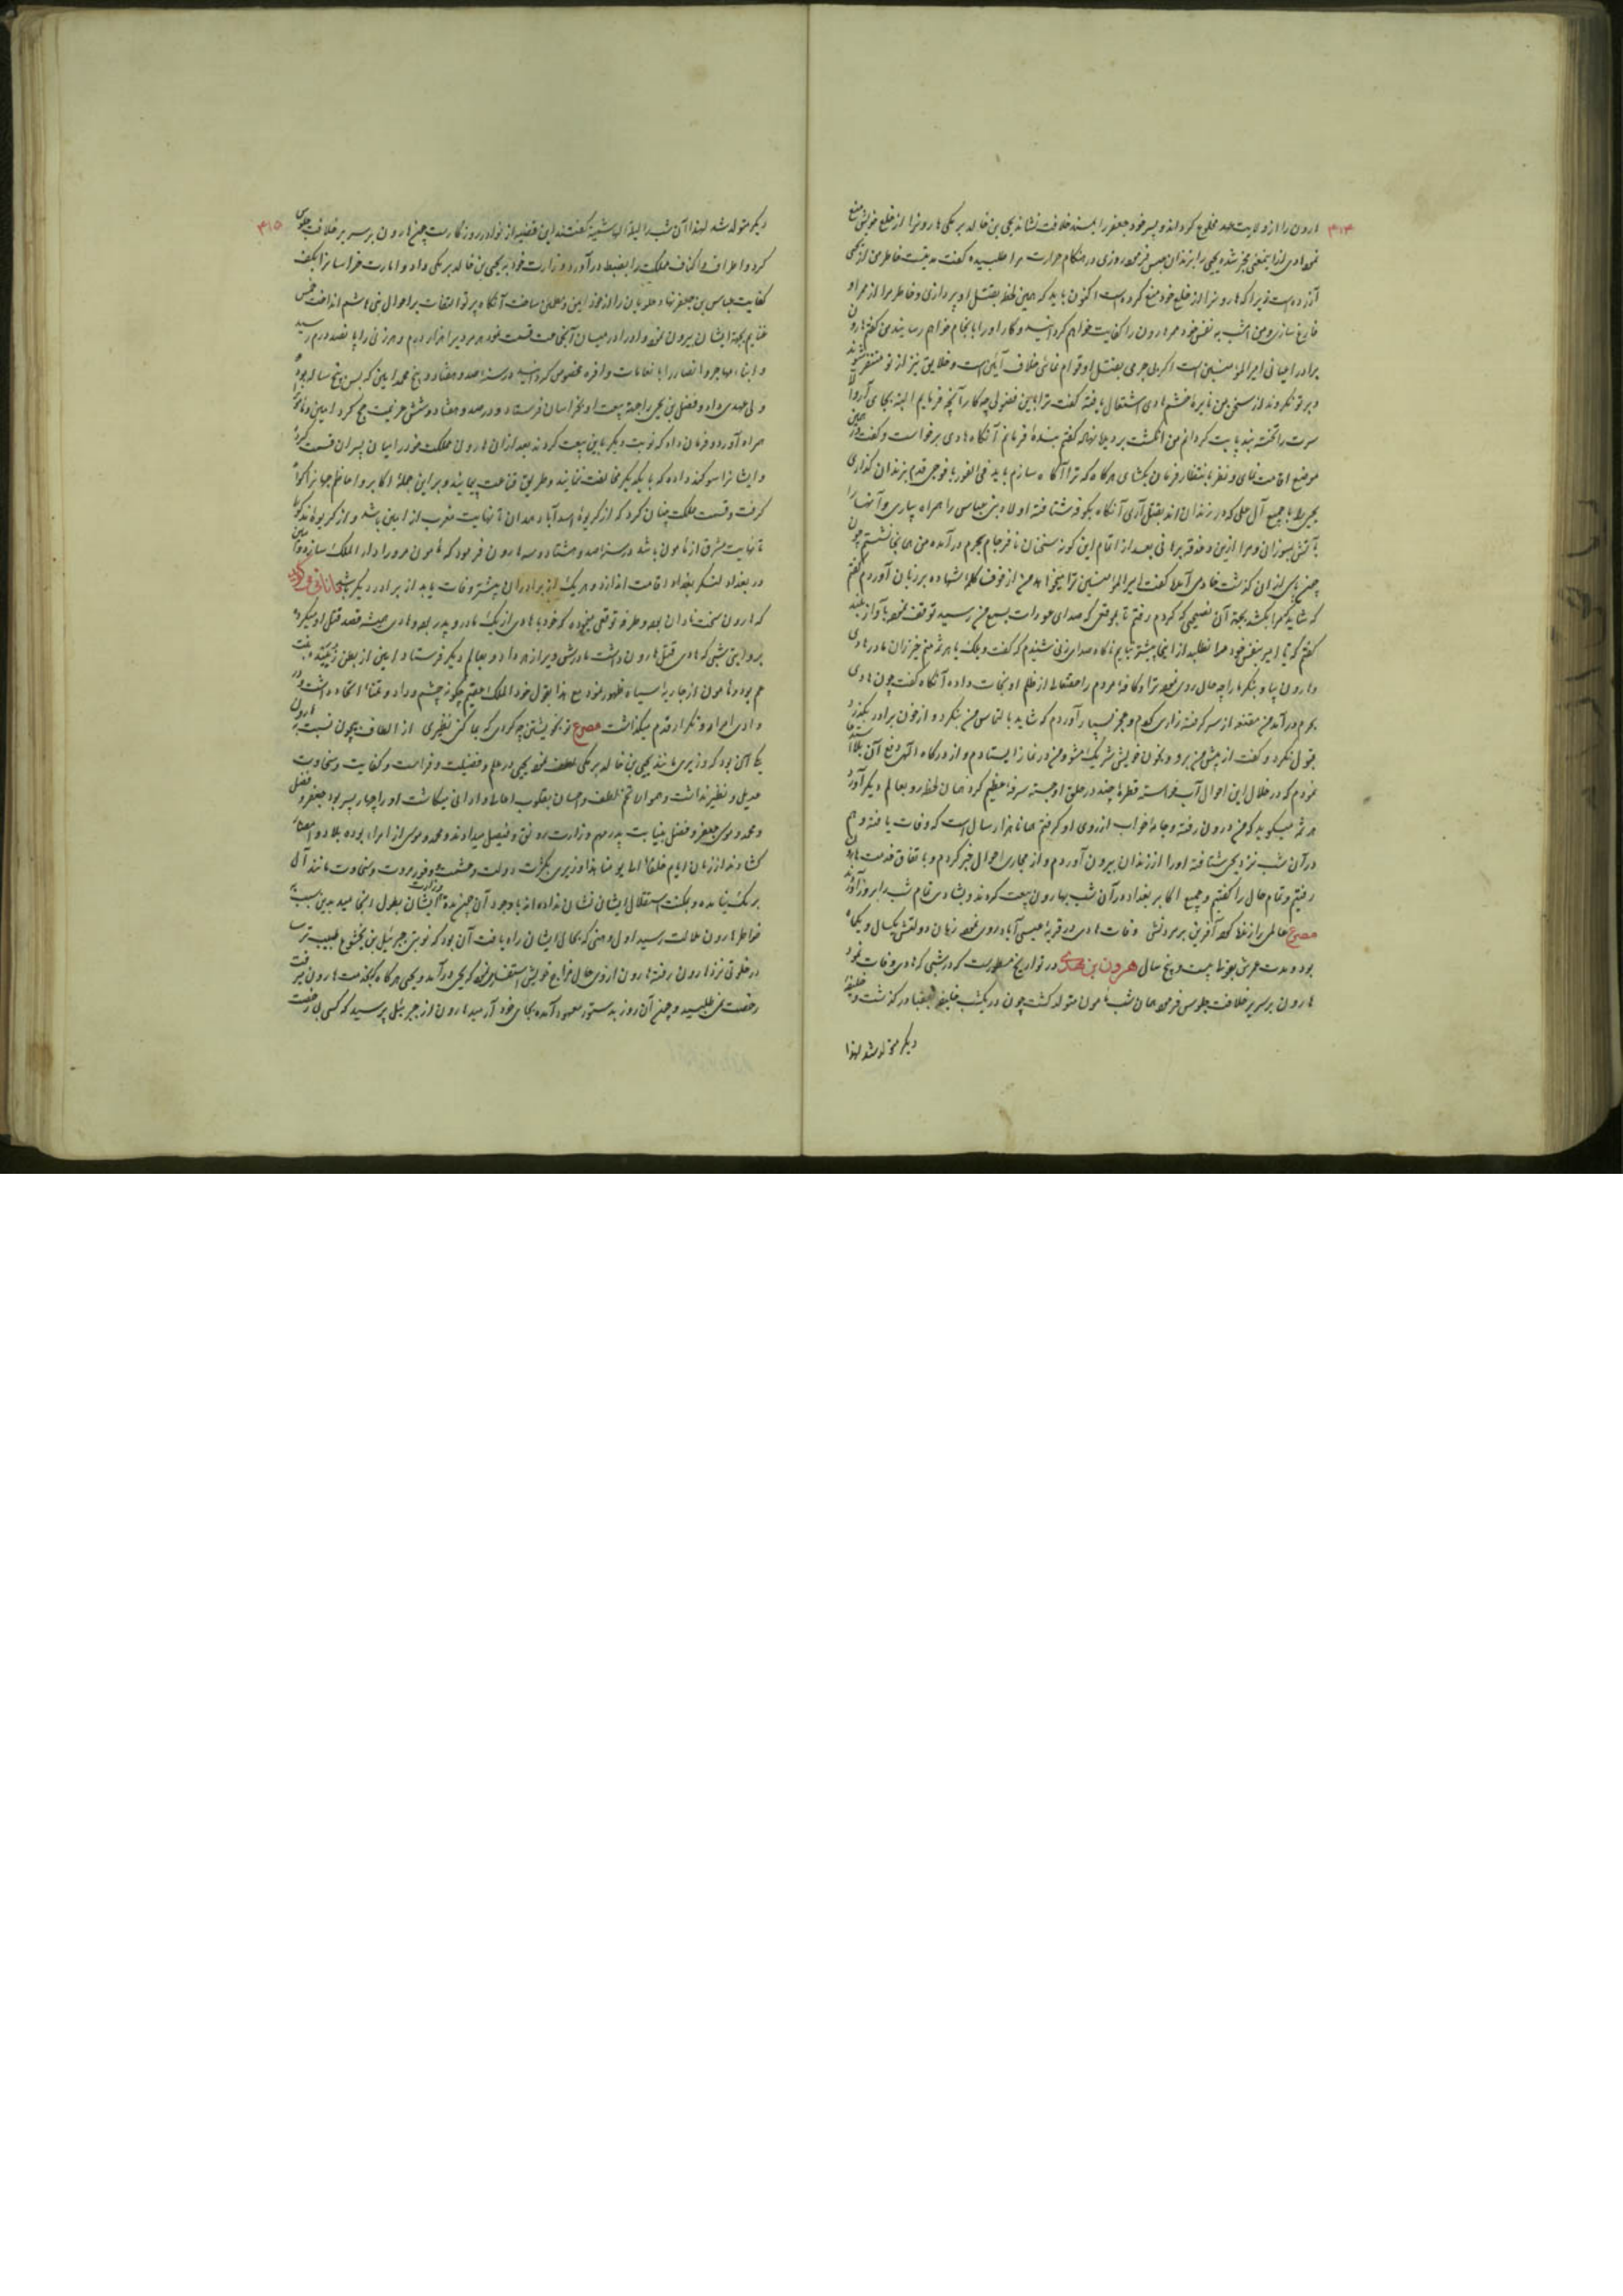 ۴۱۴
هارون را از ولایت عهد مخلوع گرداند و پسر خود جعفر را بمسند خلافت نشاند یحیی بن خالد برمکی هارونرا از خلع خویش منع
نمود هادی از اینمعنی مخبر شده یحیی را بزندان حبس فرمود روزی در هنگام حرارت مرا طلبیده گفت مدتیست خاطر من از یحیی
آزرده است زیرا که هارونرا از خلع خود منع کرده است اکنون باید که همین لحظه بقتل او پردازی و خاطر مرا از ممر او
فارغ سازی و من امشب به نفس خود مهم هارون را کفایت خواهم گردانید و کار او را بانجام خواهم رسانید من گفتم هارون
برادر اعیانی امیر المؤمنین است اگر بی جرمی بقتل او اقدام نمائی خلاف آیین است و خلایق نیز از تو متنفر شوند
و بر تو نگروند از سخن من نایره خشم هادی اشتعال یافته گفت ترا باین فضولی چه کار آنچه فرمایم البته بجای آر والا
سرت را تخته بند پایت گردانم من انگشت بر دیده نهاده گفتم بنده فرمانم آنگاه هادی برخواست و گفت در همین
موضع اقامت نمای و منتظر فرمان باش هرگاه که ترا آگاه سازم باید فی الفور با فوجی قدم بزندان گذاری
یحیی را با جمیع آل علی که در زندان اند بقتل آری آنگاه بکوفه شتافته اولاد بنی عباس را همراه بیاری و آنها را
بآتش بسوزان و مرا ازین دغدغه برهانی بعد از اتمام این گونه سخنان نافرجام بحرم درآمده من همانجا نشستم چون
چون پاسی از شب گذشت خادمی آمد گفت امیر المؤمنین ترا میخواند من از خوف کلمه شهاده بر زبان آوردم گفتم
که شاید مرا بکشد بجهة آن نصیحتی که کردم رفتم تا بموقعی که صدای عورات بسمع من رسید توقف نموده بآواز بلند
گفتم که تا امیر بنفس خود مرا نطلبد از اینجا پیشتر نیایم ناگاه صدای زنی شنیدم که گفت ویلک یا هرثمه منم خیزران مادر هادی
و هارون بیا و بنگر ما را چه حال روی نموده ترا و کافه مردم را حقتعالی از ظلم او نجات داده آنگاه گفت چون هادی
بحرم درآمد من مقنعه از سر گرفته زاری کردم و عجز بسیار آوردم که شاید بالتماس من بنگرد و از خون برادر بگذرد
قبول نکرد و گفت از پیش من برو و بخون خویش شریک مشو من در نماز ایستادم و از درگاه الهی دفع آن بلا استدعا
نمودم که در خلال این احوال آب خواسته قطره چند در حلق او جسته سرفه عظیم کرد همان لحظه رو بعالم دیگر آورد
هرثمه میگوید که من درون رفته و جامه خواب از روی او گرفتم همانا هزار سال است که وفات یافته و هم
در آن شب نزد یحیی شتافته او را از زندان بیرون آوردم و از مجاری احوال خبر کردم و باتفاق خدمت هارون
رفتیم و تمام حال را گفتیم و جمیع اکابر بغداد در آن شب بهارون بیعت کردند و بشادی تمام شب را بروز آوردند
مصرع عالمی را از خدا که آفرین بر مردنش وفات هادی در قریه عیسی آباد روی نمود زمان دولتش یکسال و یکماه
بود و مدت عمرش بقولی بیست و پنج سال هرون بن مهدی در تواریخ مسطور است که در شبی که هادی وفات نمود
هارون بر سریر خلافت جلوس فرمود همان شب مامون متولد گشت چون در یکشب خلیفه بغداد درگذشت و خلیفه
دیگر متولد شد لهذا
۴۱۵
دیگر متولد شد لهذا آن شب را لیلة الهاشمیه گفتند این قضیه از نوادر روزگار است چون هارون بر سریر خلافت جلوس
کرد و اطراف و اکناف مملکت را بضبط درآورد و وزارت خود به یحیی بن خالد برمکی داد و امارت خراسانرا بکف
کفایت عباس بن جعفر نهاد علویان را از خود ایمن و مطمئن ساخت آنگاه پرتو التفات بر احوال بنی هاشم انداخت خمس
غنایم بجهة ایشان بیرون نمود او را در میان آنجماعت قسمت نمود هر مردیرا هزار درم و هر زنی را پانصد درم رسید
و ابناء مهاجر و انصار را بانعامات وافره مخصوص گردانید در سنه صد و هفتاد و پنج محمد امین که بسن پنج ساله بود
ولی عهدی داد و فضل بن یحیی را جهة بیعت او بخراسان فرستاد و در صد و هفتاد و شش عزیمت حج کرد امین و مامون را
همراه آورد و فرمان داد که نوبت دیگر باین بیعت کردند بعد از آن هارون مملکت خود را میان پسران قسمت کرد
و ایشانرا سوگند داده که با یکدیگر مخالفت ننمایند و طریق قناعت پیمایند و بر این جمله اکابر و اعاظم جهانرا گواه
گرفت و قسمت مملکت چنان کرد که از گریوه اسدآباد همدان تا نهایت مغرب از امین باشد و از گریوه مذکور
تا نهایت مشرق از مامون باشد در سنه صد و هشتاد و سه هارون فرمود که مامون مرو را دار الملک سازد و امین
در بغداد لنگر بغداد اقامت اندازد و هر یک از برادران پیشتر وفات یابد از برادر دیگر باشد
که هارون سخت نادان بود و طرفه توقعی نموده که خود با هادی از یک مادر و پدر بود و هادی همیشه قصد قتل او میکرد
بروایتی شبی که هادی قتل هارون داشت مادرش ویرا زهر داد و بعالم دیگر فرستاد و امین از بطن زبیده بنت
عم بود و مامون از جاریه سیاه ظهور نمود مع هذا بقول خود الملک عقیم چگونه چشم وداد و تمنای اتحاد داشت و در
وادی اصرار و تکرار قدم میگذاشت مصرع تو بخویشتن چه کردی که بما کنی نظیری از الطاف بیچون نسبت بهارون
یکی آن بود که وزیری مانند یحیی بن خالد برمکی لطف نمود یحیی در علم و فضیلت و فراست و کفایت و سخاوت
عدیل و نظیر نداشت و همواره تخم لطف و احسان بقلوب اعالی و ادانی میکاشت او را چهار پسر بود جعفر و فضل
و محمد و موسی جعفر و فضل بنیابت پدر مهم وزارت رونق و فیصل میدادند و محمد و موسی از امراء بوده بلاد و امصار
گشادند از زمان ایام خلفا الی یومنا هذا وزیری بکثرت دولت و حشمت و وفور مروت و سخاوت مانند آل
برمک نیامده و بمکنت استقلال ایشان نشان نداده اند با وجود آن چون مدة وزارت ایشان بطول انجامید بدین سبب
خواطر هارون ملالت رسید اول وهنی که بحال ایشان راه یافت آن بود که نوبتی جبرئیل بن بختیشوع طبیب ترسا
در خلوتی نزد هارون رفته هارون از وی حال مزاج خویش استفسار نمود که یحیی درآمد و یحیی هرگاه بخدمت هارون میرفت
رخصت نمی طلبید و چون آن روز بدستور معهود آمده بجای خود آرمید هارون از جبرئیل پرسید که کسی بی رخصت